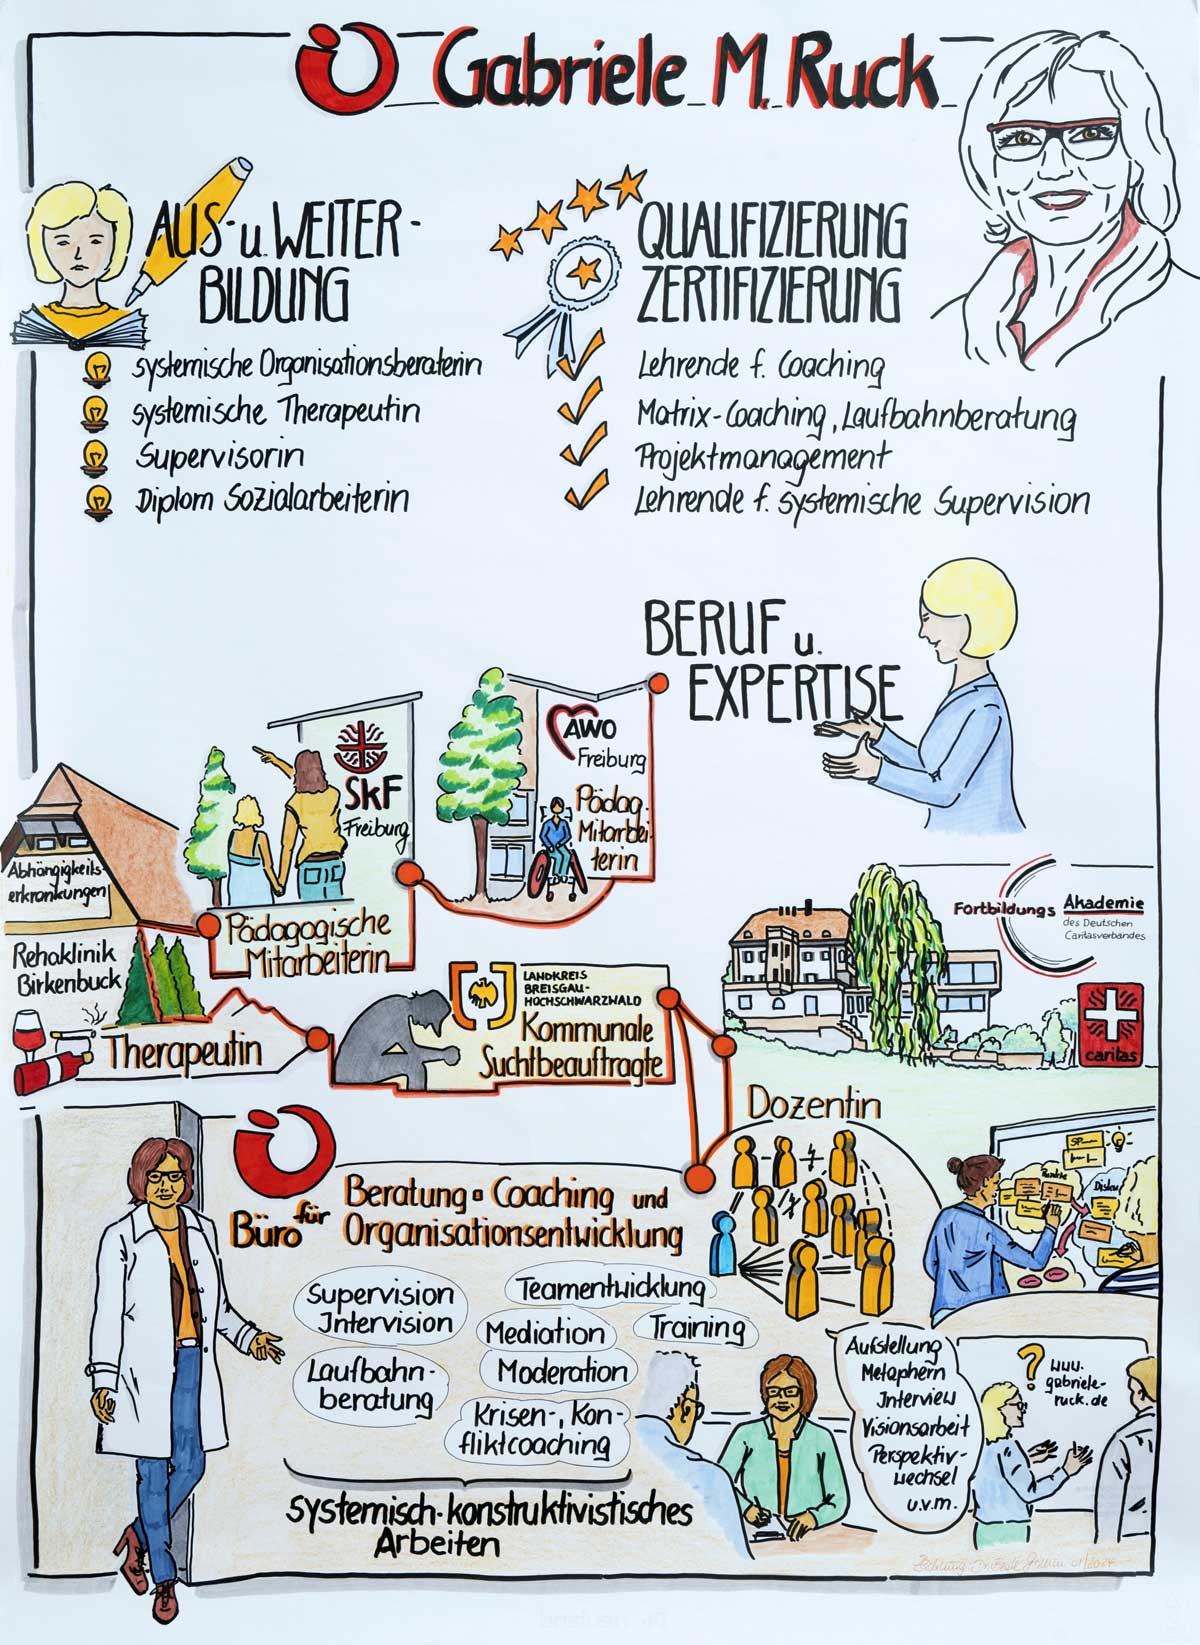 Gabriele M. Ruck
AUS- u. WEITER-
BILDUNG
systemische Organisationsberaterin
systemische Therapeutin
Supervisorin
Diplom Sozialarbeiterin
QUALIFIZIERUNG
ZERTIFIZIERUNG
Lehrende f. Coaching
Matrix-Coaching, Laufbahnberatung
Projektmanagement
Lehrende f. systemische Supervision
BERUF u.
EXPERTISE
AWO
Freiburg
Pädag.
Mitarbei-
terin
SkF
Freiburg
Pädagogische
Mitarbeiterin
Abhängigkeits-
erkrankungen
Rehaklinik
Birkenbuck
Therapeutin
LANDKREIS
BREISGAU-
HOCHSCHWARZWALD
Kommunale
Suchtbeauftragte
Fortbildungs Akademie
des Deutschen
Caritasverbandes
caritas
Dozentin
Büro für
Beratung Coaching und
Organisationsentwicklung
Supervision
Intervision
Teamentwicklung
Mediation
Training
Moderation
Laufbahn-
beratung
Krisen-, Kon-
fliktcoaching
systemisch-konstruktivistisches
Arbeiten
Aufstellung
Metaphern
Interview
Visionsarbeit
Perspektiv-
wechsel
u.v.m.
?
www.
gabriele-
ruck.de